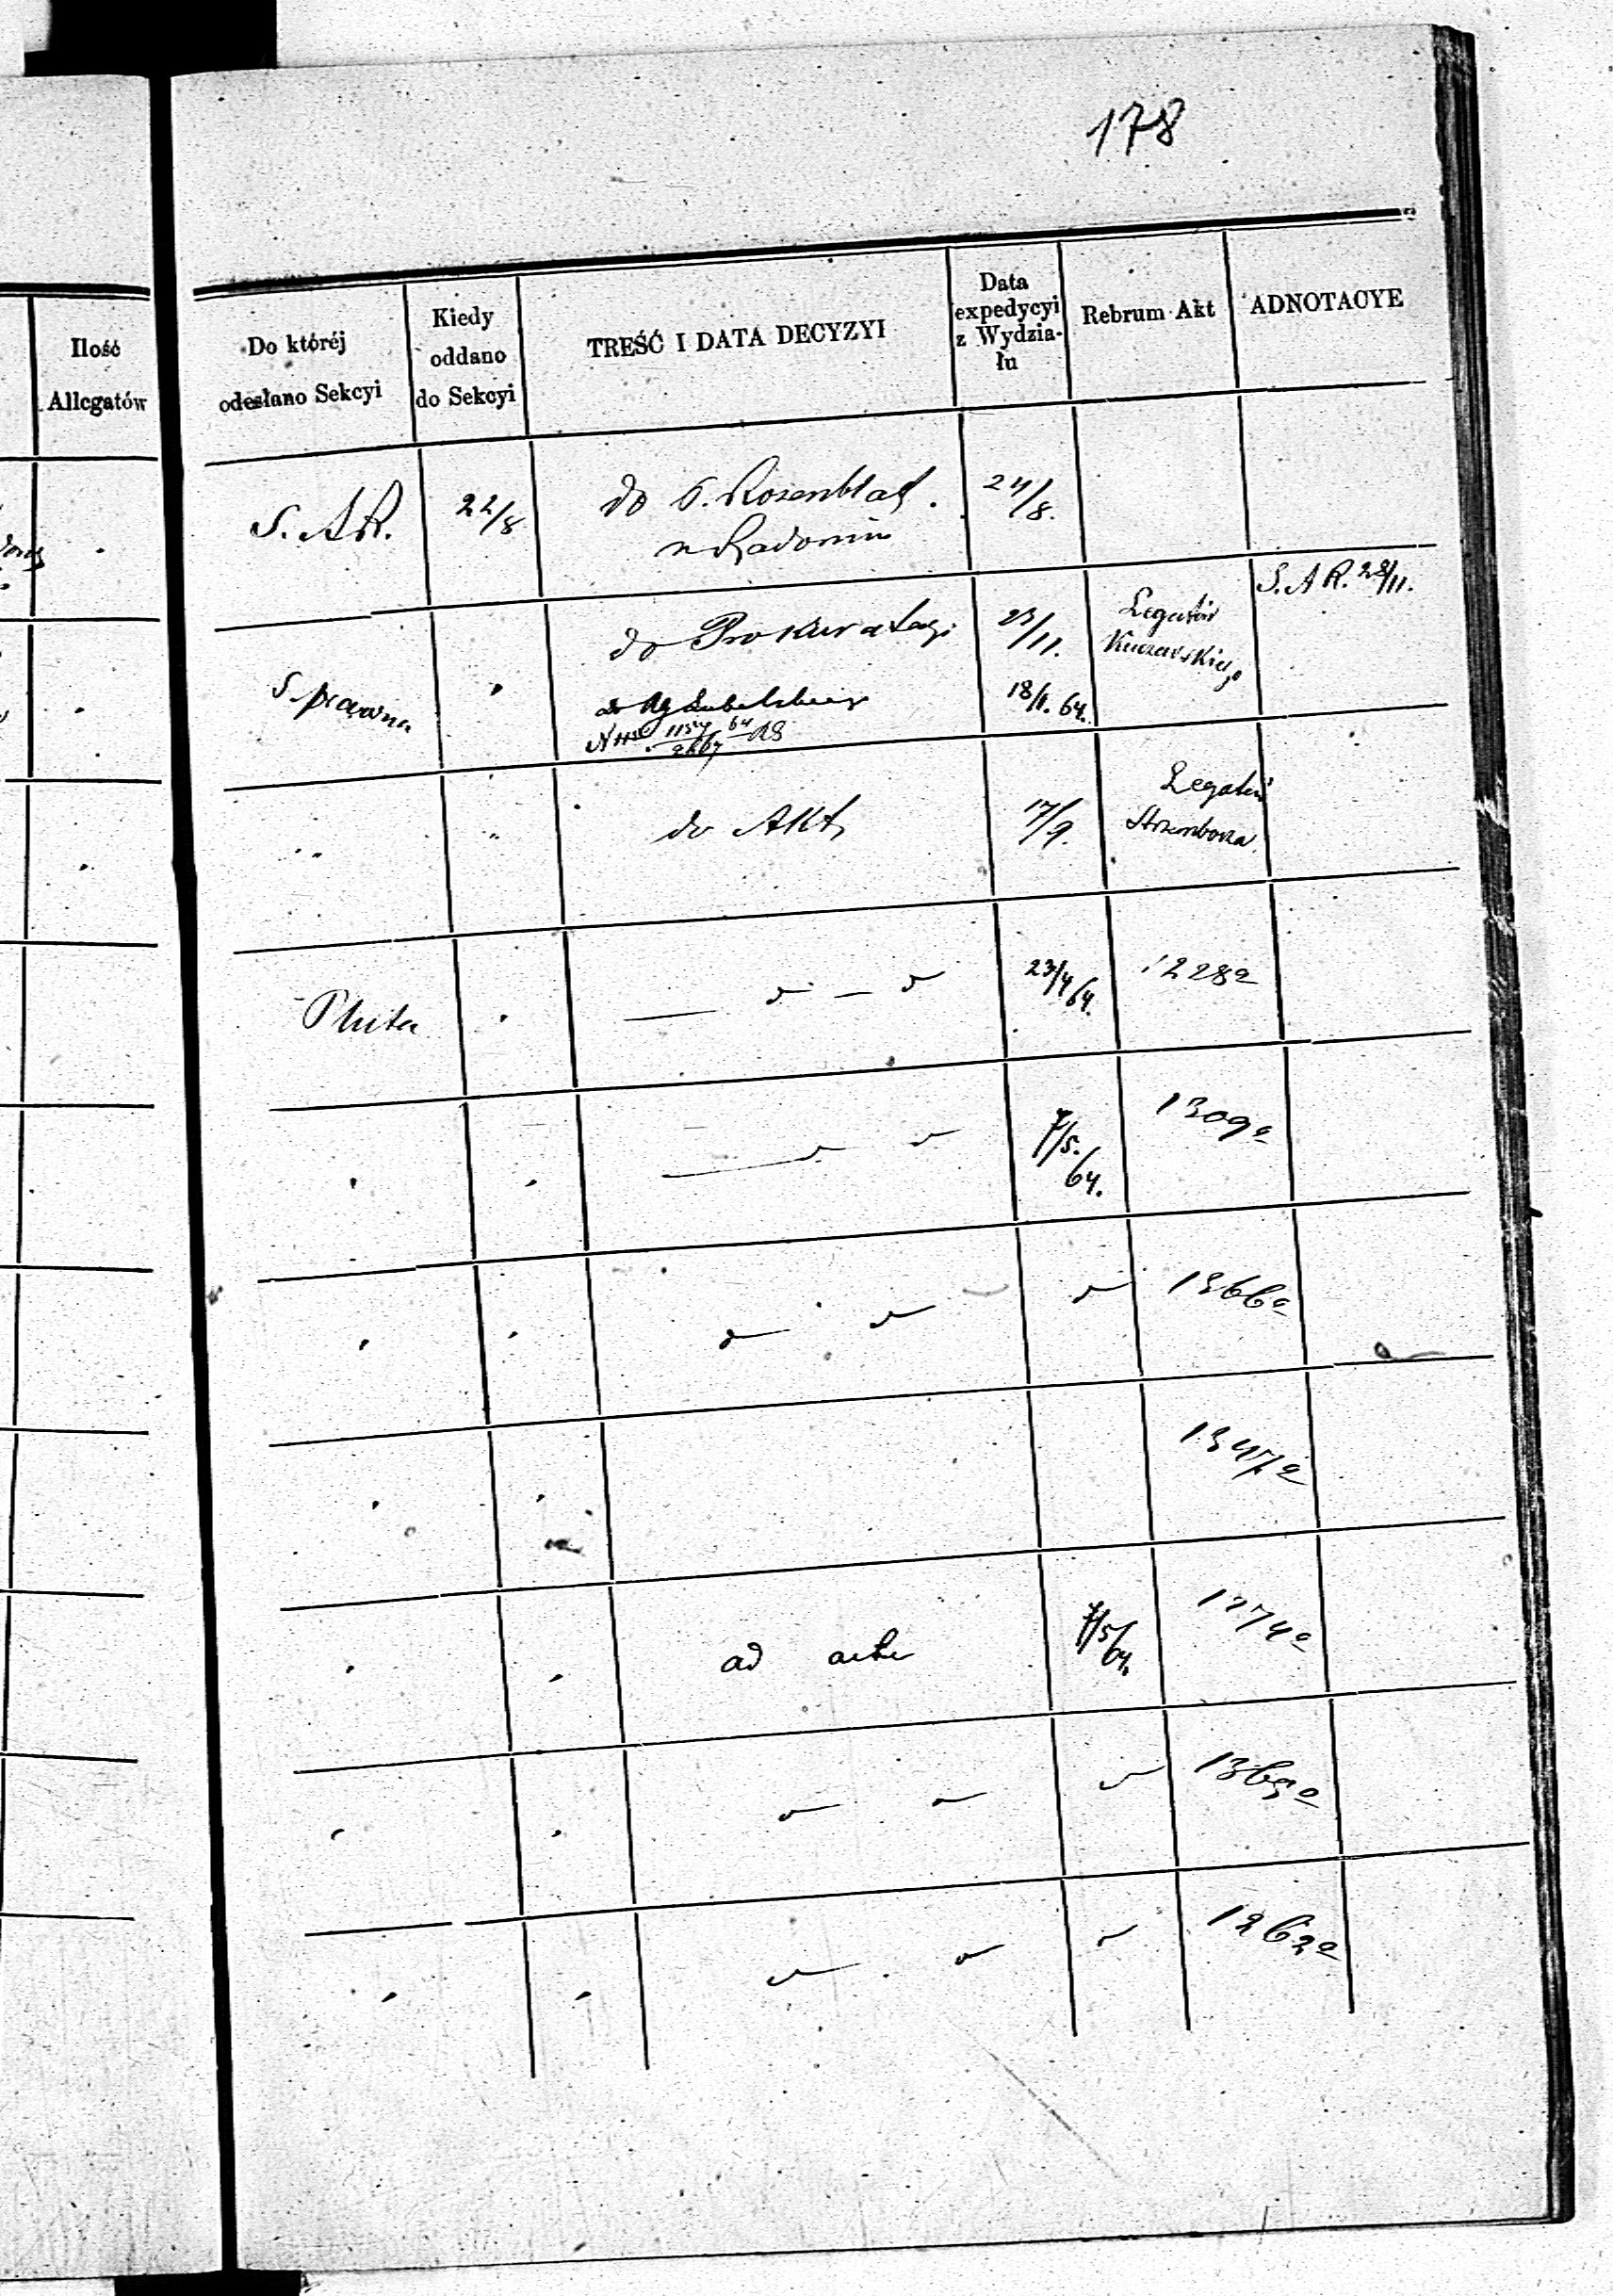 178
Ilość
Allegatów
Do któréj
odesłano Sekcyi
Kiedy
oddano
do Sekcyi
TREŚĆ I DATA DECYZYI
Data
expedycyi
z Wydzia-
łu
Rebrum Akt
ADNOTACYE
S. A R.
22/8
do S. Rosenblat.
w Radomiu
24/8.
S. prawna
do Prokuratoryi
23/11.
Legatów
S. A R. 28/11.
18/1. 64.
do Akt
17/9.
Legatów
Pluta
23/4 64.
1228a
7/5.
64.
1309a
1366a
1347a
ad acta
7/5 64.
1374a
1365a
1262a